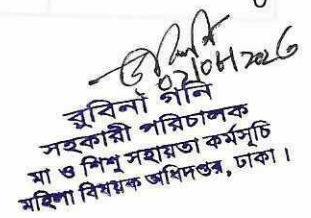 ০২/০৮/২০২৩
রুবিনা গনি
সহকারী পরিচালক
মা ও শিশু সহায়তা কর্মসূচি
মহিলা বিষয়ক অধিদপ্তর, ঢাকা।